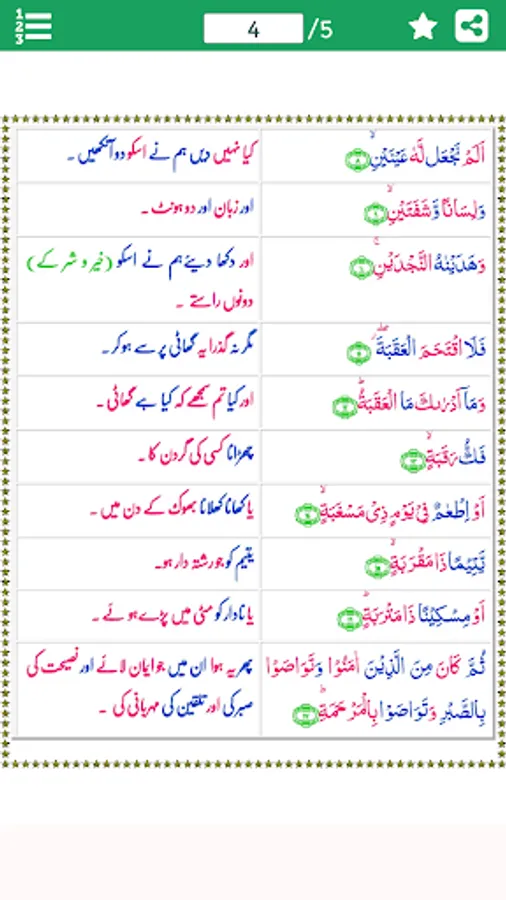 1
2
3
4 /5
اَلَمْ نَجْعَل لَّهٗ عَيْنَيْنِۙ
کیا نہیں دیں ہم نے اسکو دو آنکھیں ۔
وَلِسَانًا وَّشَفَتَيْنِۙ
اور زبان اور دو ہونٹ ۔
وَهَدَيْنٰهُ النَّجْدَيْنِۚ
اور دکھا دیئے ہم نے اسکو (خیر و شر کے)
دونوں راستے ۔
فَلَا اقْتَحَمَ الْعَقَبَةَ ۖ
مگر نہ گذرا یہ گھاٹی پر سے ہو کر۔
وَمَآ اَدْرٰىكَ مَا الْعَقَبَةُؕ
اور کیا تم سمجھے کہ کیا ہے گھاٹی ۔
فَكُّ رَقَبَةٍۙ
چھڑانا کسی کی گردن کا ۔
اَوْ اِطْعٰمٌ فِيْ يَوْمٍ ذِيْ مَسْغَبَةٍۙ
یا کھانا کھلانا بھوک کے دن میں ۔
يَّتِيْمًا ذَا مَقْرَبَةٍۙ
یتیم کو جو رشتہ دار ہو۔
اَوْ مِسْكِيْنًا ذَا مَتْرَبَةٍؕ
یا نادار کو مٹی میں پڑے ہوئے ۔
ثُمَّ كَانَ مِنَ الَّذِيْنَ اٰمَنُوْا وَتَوَاصَوْا
بِالصَّبْرِ وَتَوَاصَوْا بِالْمَرْحَمَةِؕ
پھر یہ ہوا ان میں جو ایمان لائے اور نصیحت کی
صبر کی اور تلقین کی مہربانی کی ۔